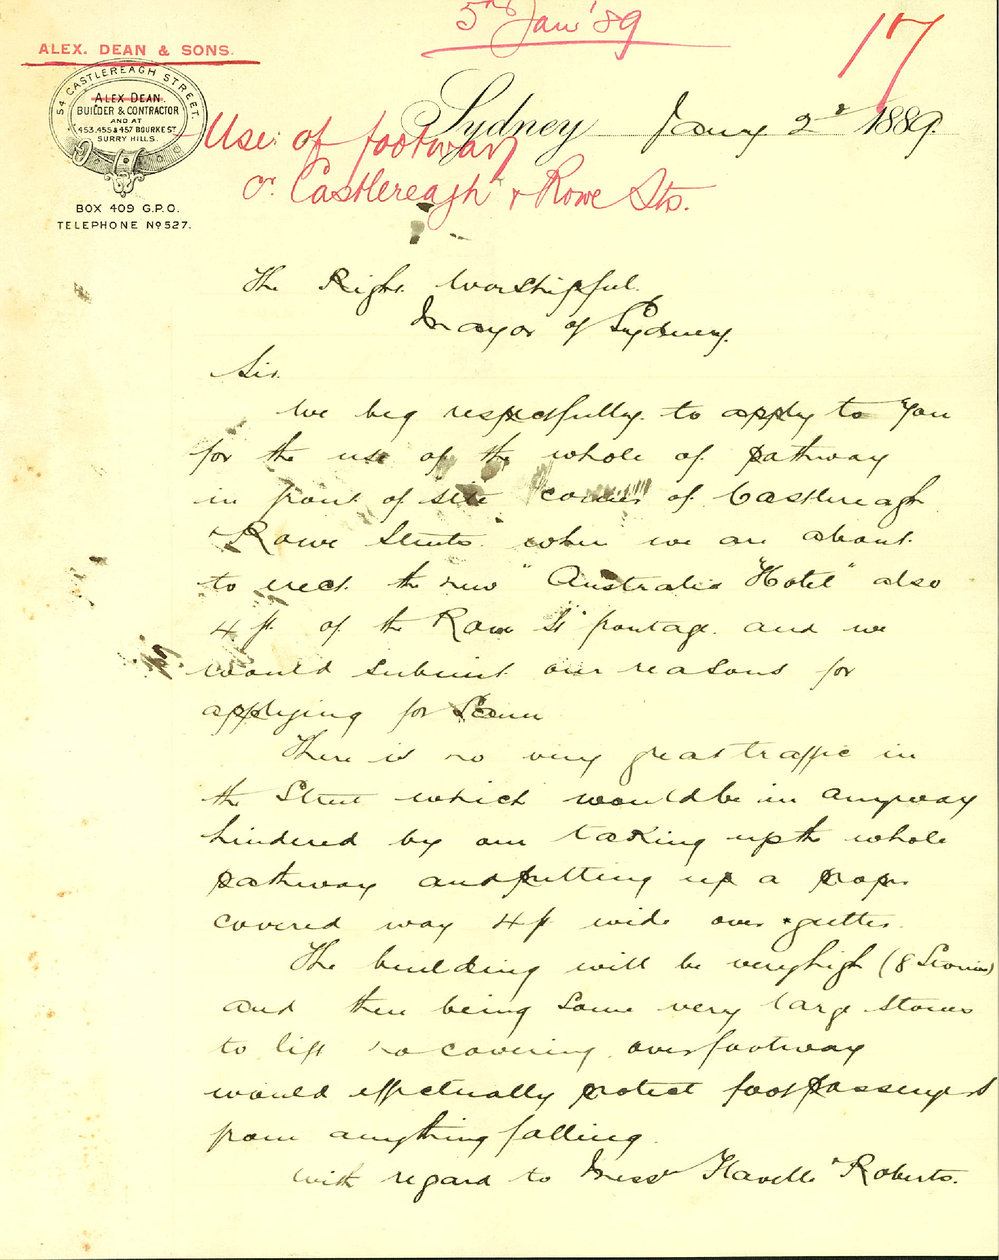 5th Jany '89
17
ALEX. DEAN & SONS.
54 CASTLEREAGH STREET.
ALEX DEAN.
BUILDER & CONTRACTOR
AND AT
453,455 & 457 BOURKE ST
SURRY HILLS.
BOX 409 G.P.O.
TELEPHONE No 527.
Sydney Jany 2d 1889.
Use of footway
Cr. Castlereagh & Rowe Sts.
The Right Worshipful.
Mayor of Sydney.
Sir.
We beg respectfully to apply to You
for the use of the whole of pathway
in front of site corner of Castlereagh
& Rowe Streets where we are about
to erect the new "Australia Hotel" also
4 ft of the Rowe St frontage and we
would submit our reasons for
applying for same
There is no very great traffic in
the Street which would be in anyway
hindered by our taking up the whole
pathway and putting up a proper
covered way 4 ft wide over gutter.
The building will be very high (8 Stories)
and there being some very large stones
to lift no covering over footway
would effectually protect foot passengers
from anything falling.
With regard to Messrs Flavelle & Roberts.